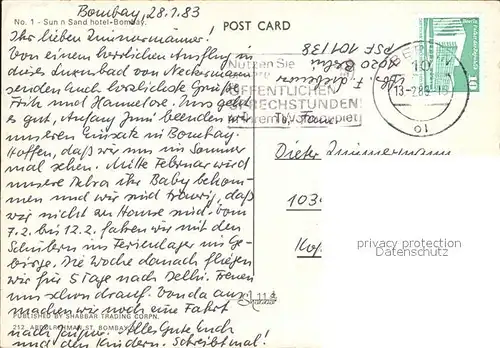 Bombay, 28.1.83
No. 1 - Sun n Sand hotel-Bombay.
POST CARD
Ihr lieben Zimmermänner!
Von einem herrlichen Ausflug in
dieses Luxusbad von Neckermann
senden Euch herzlichste Grüße
Fritz und Hannelore. Uns geht
es gut, Anfang Juni beenden wir
unseren Einsatz in Bombay.
Hoffen, daß wir uns im Sommer
mal sehen. Mitte Februar wird
unsere Petra ihr Baby bekom-
men und wir sind traurig, daß
wir nicht zu Hause sind. Vom
7.2. bis 12.2. fahren wir mit den
Schülern ins Ferienlager ins Ge-
birge. Die Woche danach fliegen
wir für 5 Tage nach Delhi. Freuen
uns schon drauf. Von da aus
machen wir noch eine Fahrt
nach Jaipur. Alles Gute Euch
und den Kindern. Schreibt mal!
PUBLISHED BY SHABBAR TRADING CORPN.
212, ABDUL REHMAN ST. BOMBAY
Nutzen Sie
ÖFFENTLICHEN
SPRECHSTUNDEN!
in Ihrem
1020 Berlin
PSF 101138
BERLIN
13-2.83
Fam.
Dieter Zimmermann
103
privacy protection
Datenschutz